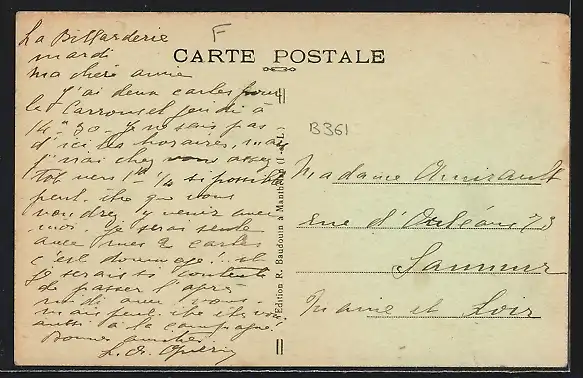 La Billarderie
mardi
ma chère amie
J'ai deux cartes pour
le Carrousel jeudi à
14h 30 - Je ne sais pas
d'ici les horaires, mais
j'irai chez vous assez
tôt vers 1h 1/4 si possible
peut-être que vous
voudrez y venir avec
moi. Je serai seule
avec mes 2 cartes
c'est dommage! et
je serais si contente
de passer l'après
midi avec vous.
mais peut-être êtes vous
aussi à la campagne.
Bonnes amitiés
F
CARTE POSTALE
B361
Edition R. Baudouin à Manthelan (I.-&-L.)
Madame Amirault
rue d'Orléans 73
Saumur
Maine et Loir